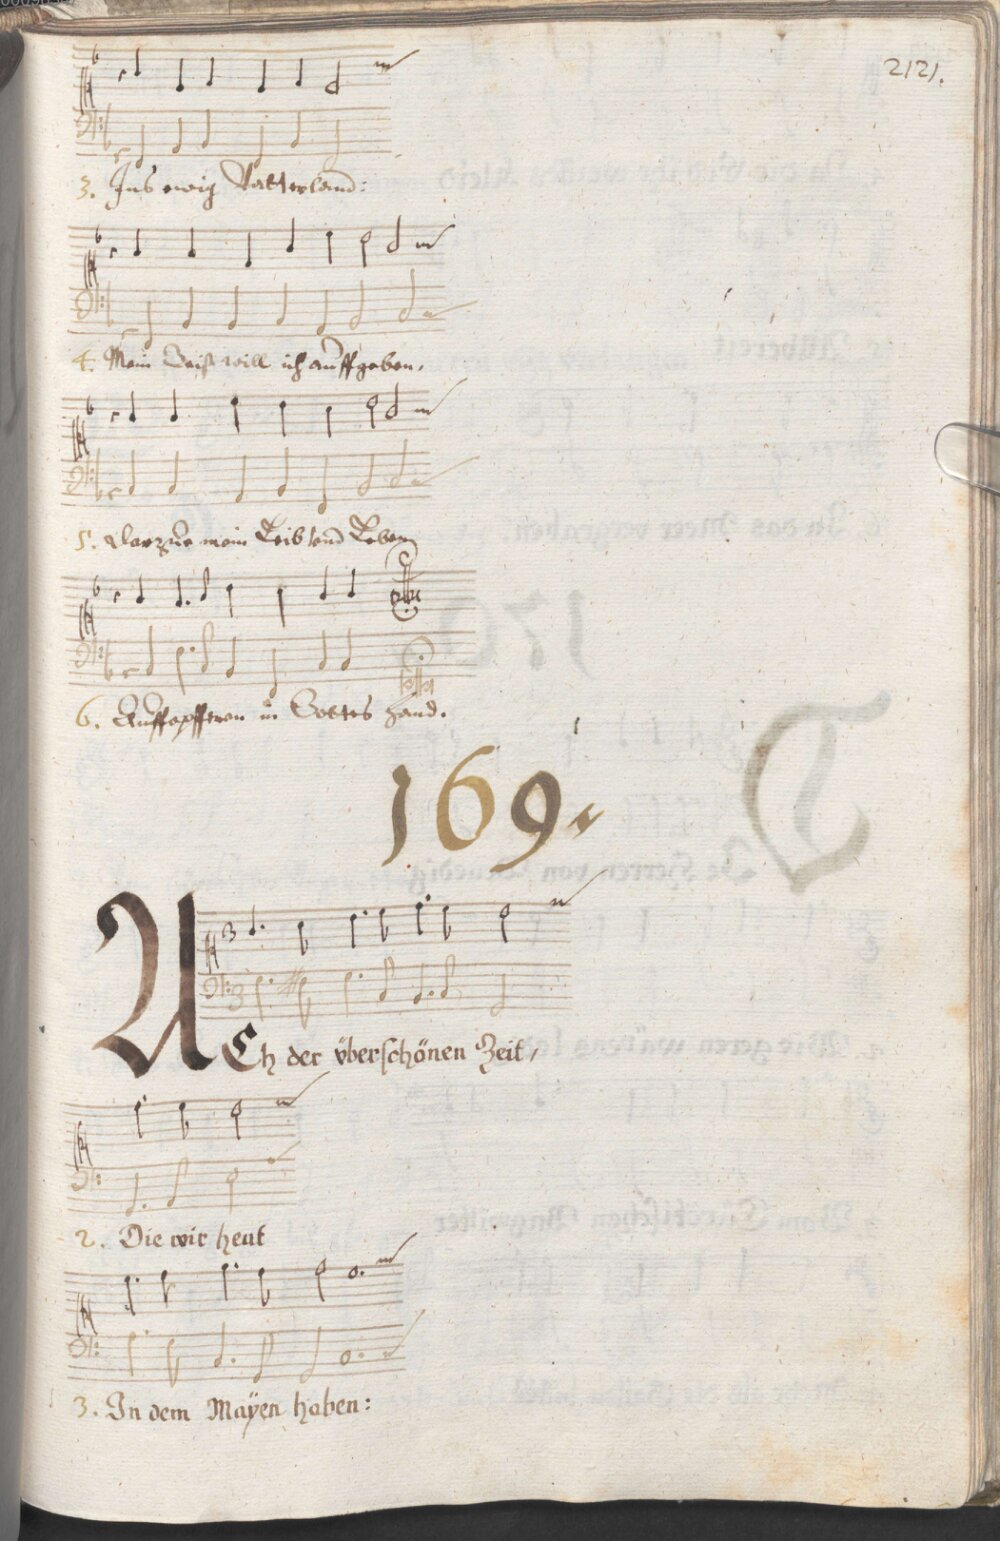 212.
3. Ins ewig Vatterland:
4. Mein Geist will ich auffgeben,
5. Darzue mein Leib vnd Leben
6. Auffopfferen in Gottes Hand.
169.
ACh der überschönen Zeit,
2. Die wir heut
3. In dem Mayen haben: